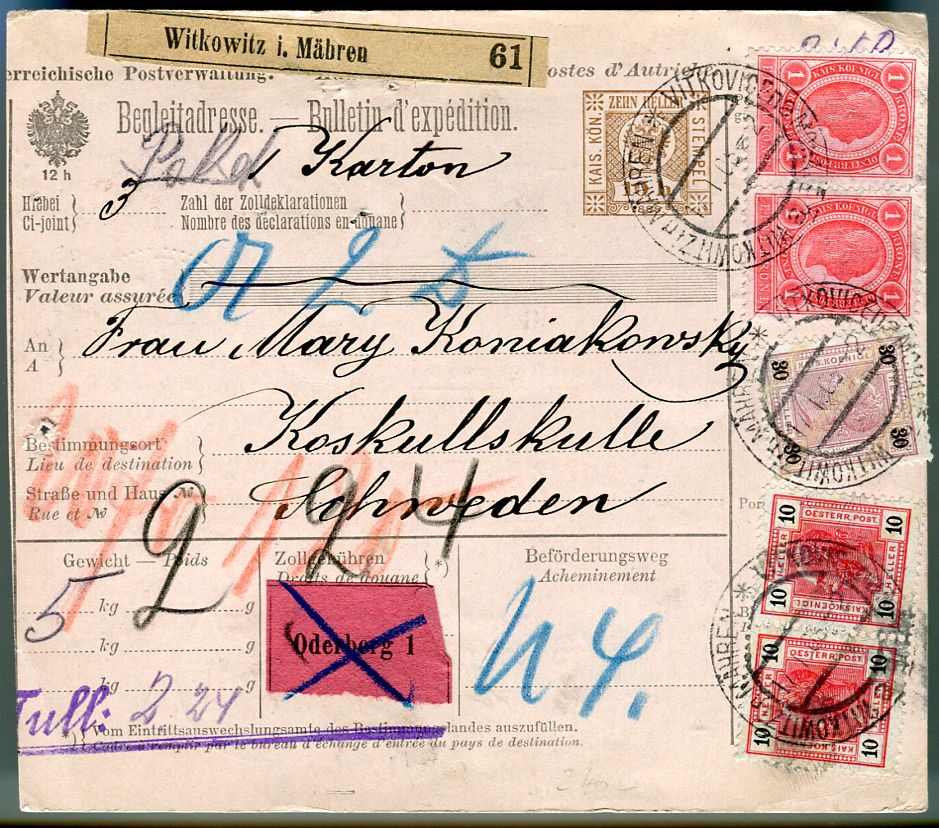 Witkowitz i. Mähren 61
erreichische Postverwaltung. ostes d'Autric
Begleitadresse. — Bulletin d'expédition.
12 h
1 Karton
ZEHN HELLER
KAIS. KÖN.
STEMPEL
Hiebei
Ci-joint
3
Zahl der Zolldeklarationen
Nombre des déclarations en douane
Wertangabe
Valeur assurée
An
A
Frau Mary Koniakowsky
Bestimmungsort
Lieu de destination
Koskullskulle
Straße und Haus №
Rue et №
Schweden
2 24
Gewicht — Poids
Zollgebühren
Droits de douane *)
Beförderungsweg
Acheminement
5 kg g
kg g
kg g
Oderberg 1
Tull: 2 24
*) Vom Eintrittsauswechslungsamte des Bestimmungslandes auszufüllen.
*) Cadre à remplir par le bureau d'échange d'entrée du pays de destination.
1 KAIS. KOENIGL. 1
KRONE
1 OESTERR. POST 1
1 KAIS. KOENIGL. 1
1 1
30 30
30 30
10 OESTERR. POST. 10
HELLER HELLER
10 KAIS. KOENIGL. 10
10 OESTERR. POST. 10
HELLER HELLER
10 KAIS. KOENIGL. 10